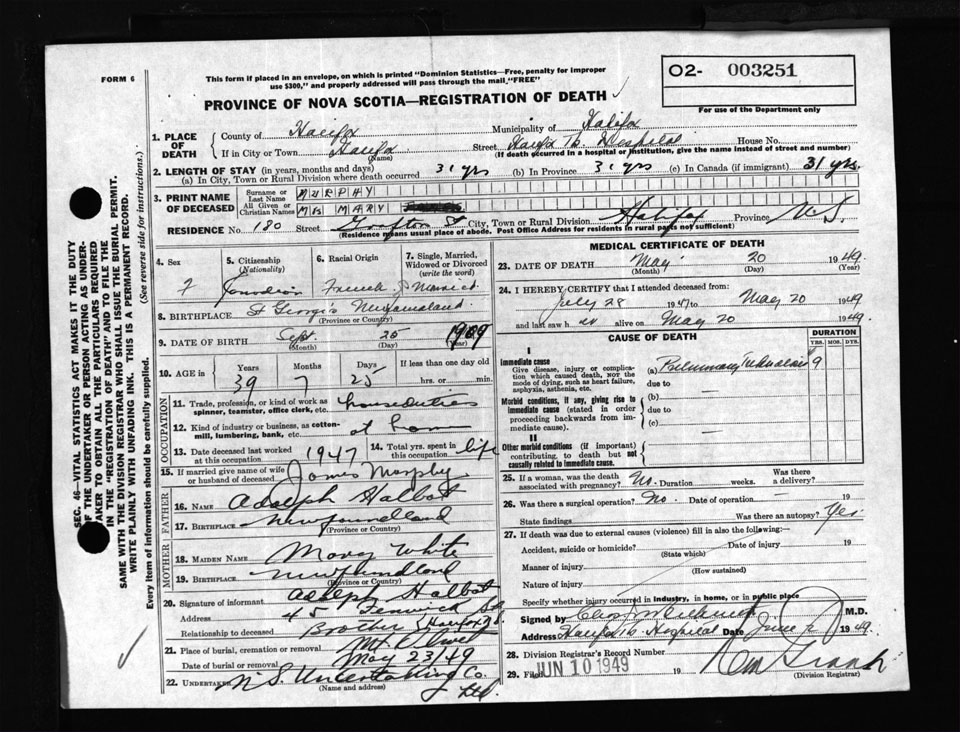 FORM 6
This form if placed in an envelope, on which is printed "Dominion Statistics—Free, penalty for improper
use $300," and properly addressed will pass through the mail, "FREE"
02- 003251
For use of the Department only
PROVINCE OF NOVA SCOTIA—REGISTRATION OF DEATH
SEC. 46—VITAL STATISTICS ACT MAKES IT THE DUTY
OF THE UNDERTAKER OR PERSON ACTING AS UNDER-
TAKER TO OBTAIN ALL THE PARTICULARS REQUIRED
IN THE "REGISTRATION OF DEATH" AND TO FILE THE
SAME WITH THE DIVISION REGISTRAR WHO SHALL ISSUE THE BURIAL PERMIT.
WRITE PLAINLY WITH UNFADING INK. THIS IS A PERMANENT RECORD.
Every item of information should be carefully supplied. (See reverse side for instructions.)
1. PLACE OF DEATH
County of Halifax Municipality of Halifax
If in City or Town Halifax (Name) Street Halifax Tb. Hospital House No.
(If death occurred in a hospital or institution, give the name instead of street and number)
2. LENGTH OF STAY (in years, months and days)
(a) In City, Town or Rural Division where death occurred 31 yrs (b) In Province 31 yrs (c) In Canada (if immigrant) 31 yrs.
3. PRINT NAME OF DECEASED
Surname or Last Name MURPHY
All Given or Christian Names Mrs MARY
RESIDENCE No. 180 Street Grafton St City, Town or Rural Division Halifax Province N.S.
(Residence means usual place of abode. Post Office Address for residents in rural parts not sufficient)
4. Sex F
5. Citizenship (Nationality) Canadian
6. Racial Origin French
7. Single, Married, Widowed or Divorced (write the word) Married
8. BIRTHPLACE St Georges Newfoundland
(Province or Country)
9. DATE OF BIRTH Sept. (Month) 25 (Day) 1909 (Year)
10. AGE in Years 39 Months 7 Days 25 If less than one day old hrs. or min.
OCCUPATION
11. Trade, profession, or kind of work as spinner, teamster, office clerk, etc. house duties
12. Kind of industry or business, as cotton-mill, lumbering, bank, etc. at home
13. Date deceased last worked at this occupation 1947
14. Total yrs. spent in this occupation life
15. If married give name of wife or husband of deceased James Murphy
FATHER
16. NAME Adolph Halbot
17. BIRTHPLACE Newfoundland
(Province or Country)
MOTHER
18. MAIDEN NAME Mary White
19. BIRTHPLACE Newfoundland
(Province or Country)
20. Signature of informant Adolph Halbot
Address 45 Fenwick St. Halifax
Relationship to deceased Brother
21. Place of burial, cremation or removal Mt Olivet
Date of burial or removal May 23/49
22. UNDERTAKER N.S. Undertaking Co. Ltd.
(Name and address)
MEDICAL CERTIFICATE OF DEATH
23. DATE OF DEATH May (Month) 20 (Day) 1949 (Year)
24. I HEREBY CERTIFY that I attended deceased from:
July 28 1947 to May 20 1949
and last saw h er alive on May 20 1949.
CAUSE OF DEATH
DURATION
YRS. MOS. DYS.
I
Immediate cause
Give disease, injury or complication which caused death, not the mode of dying, such as heart failure, asphyxia, asthenia, etc.
(a) Pulmonary Tuberculosis 9
due to
Morbid conditions, if any, giving rise to immediate cause (stated in order proceeding backwards from immediate cause).
(b)
due to
(c)
II
Other morbid conditions (if important) contributing to death but not causally related to immediate cause.
25. If a woman, was the death associated with pregnancy? No. Duration weeks. Was there a delivery?
26. Was there a surgical operation? No. Date of operation 19
State findings Was there an autopsy? Yes
27. If death was due to external causes (violence) fill in also the following:—
Accident, suicide or homicide? (State which) Date of injury 19
Manner of injury (How sustained)
Nature of injury
Specify whether injury occurred in industry, in home, or in public place
Signed by M.D.
Address Halifax Tb. Hospital Date June 1949.
28. Division Registrar's Record Number
29. Filed JUN 10 1949 19
(Division Registrar)